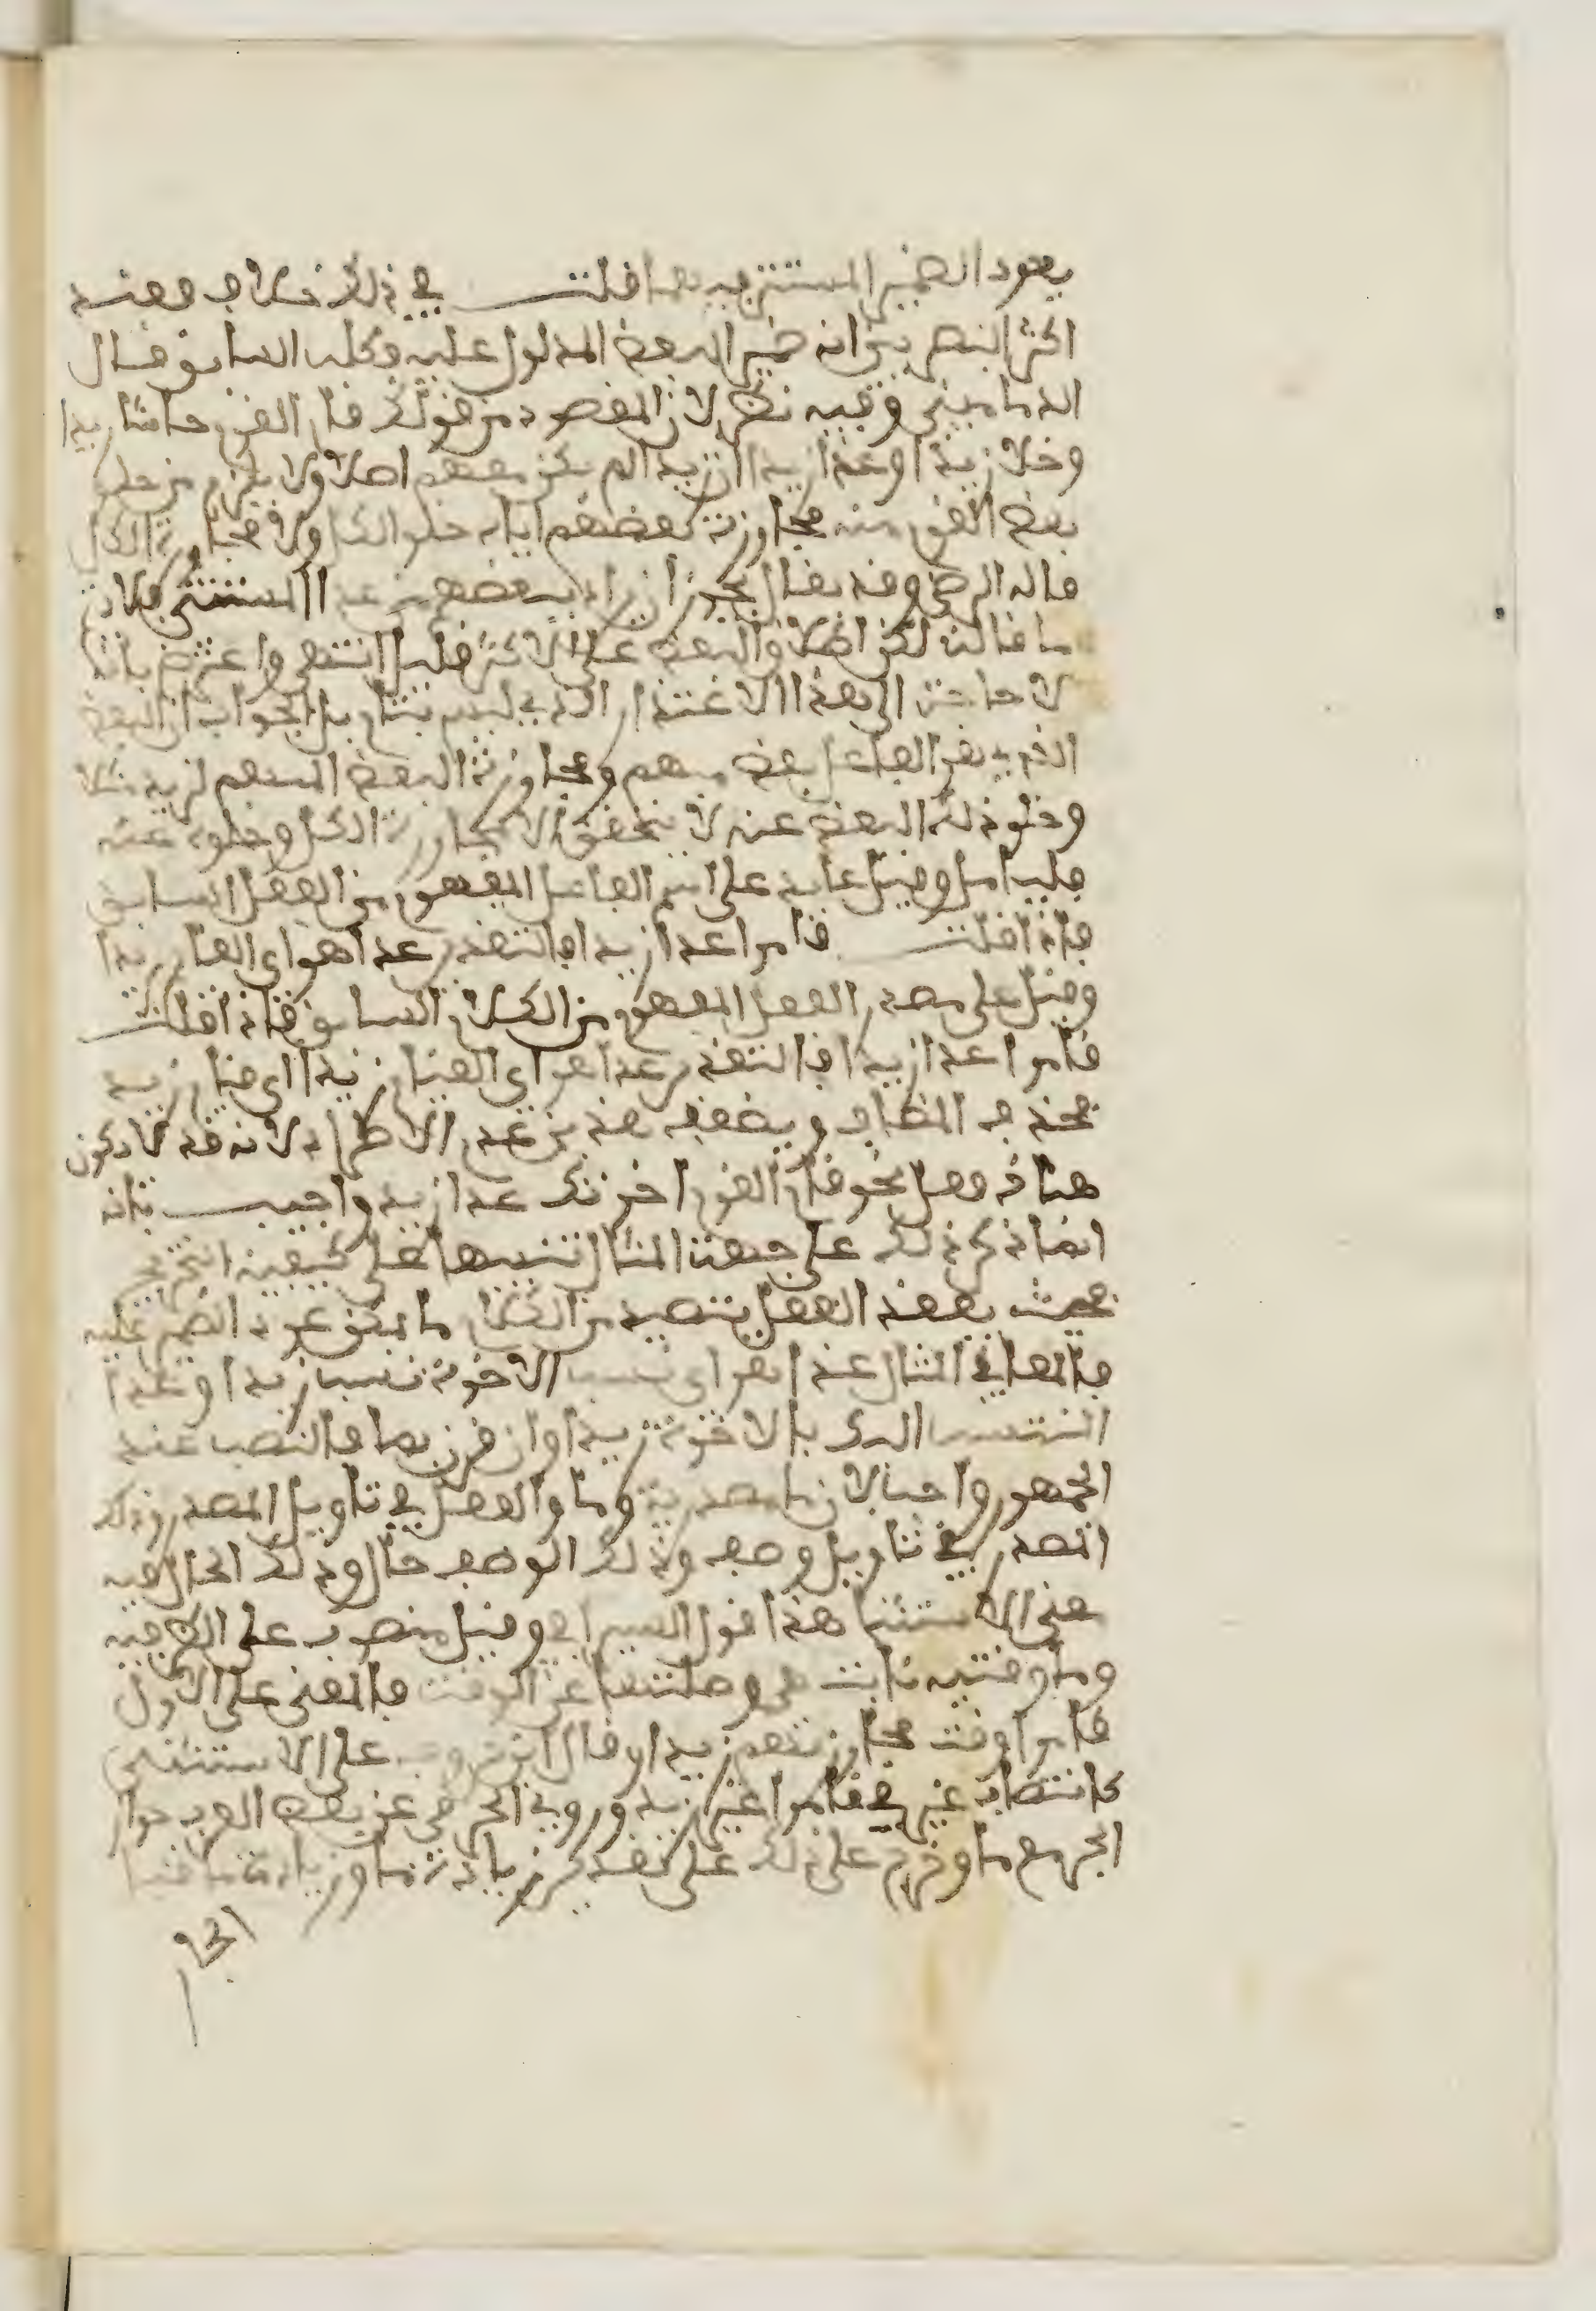 يعود الضمير المستتر فيهما قلت في ذلك خلاف فعند
اكثر البصريين انه ضمير البعض المدلول عليه وكله السابق قال
الدماميني وفيه نظر لان المقصود من قولك قام القوم حاشا زيدا
وخلا زيدا وعدا زيدا ان زيدا لم يكن معهم اصلا ولا يلزم من خلو
بعض القوم منه مجاوزة بعضهم اياه خلو الكل ولا مجاوزة الكل
قاله الرضي وقد يقال يجوز ان يراد ببعضهم من عدا المستثنى فلا يرد
ما قاله لكن اطلاق البعض على الاكثر قليل انتهى واعترض بانه
لا حاجة الى هذا الاعتذار الذي ليس بتام بل الجواب ان البعض
الذي هو الفاعل بعض مبهم ومجاوزة البعض المبهم لزيد مثلا
وخلو ذلك البعض عنه لا يتحقق الا بمجاوزة الكل وخلوه عنه
فليتامل وقيل عائد على اسم الفاعل المفهوم من الفعل السابق
فاذا قلت قاموا عدا زيدا فالتقدير عدا هو اي القائم زيدا
وقيل على مصدر الفعل المفهوم من الكلام السابق فاذا قلت
قاموا عدا زيدا فالتقدير عدا هو اي القيام زيدا اي قيام زيد
فحذف المضاف ويضعف هذين عدم الاطراد لانه قد لا يكون
هناك فعل نحو قام القوم اخوتك عدا زيدا واجيب بانه
انما ذكر ذلك على جهة المثال تنبيها على كيفية التخريج
فحيث يفقد الفعل يتصيد من الكلام ما يمكن عود الضمير عليه
فالمعنى في المثال عدا هو اي نسب الاخوة نسب زيدا او عدا
المنتسب اليك بالاخوة زيدا وان قرن بما فالنصب عند
الجمهور واجب لان ما مصدرية وما والفعل في تاويل المصدر وذلك
المصدر في تاويل وصف وذلك الوصف حال وذلك الحال فيه
معنى الاستثنا هذا قول السيرافي وقيل منصوب على الظرفية
وما وقتية نابت هي وصلتها عن الوقت فالمعنى على الاول
قاموا وقت مجاوزتهم زيدا وقال ابن خروف على الاستثنى
كانتصاب غير في قاموا غير زيد وروي الجرمي عن بعض العرب جواز
الجر مع ما وخرج على ذلك على تقدير زيادة ما وزيادة ما قبل
الجار